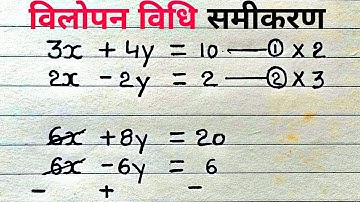 विलोपन विधि समीकरण
3x + 4y = 10 — ① × 2
2x - 2y = 2 — ② × 3
6x + 8y = 20
6x - 6y = 6
- + -